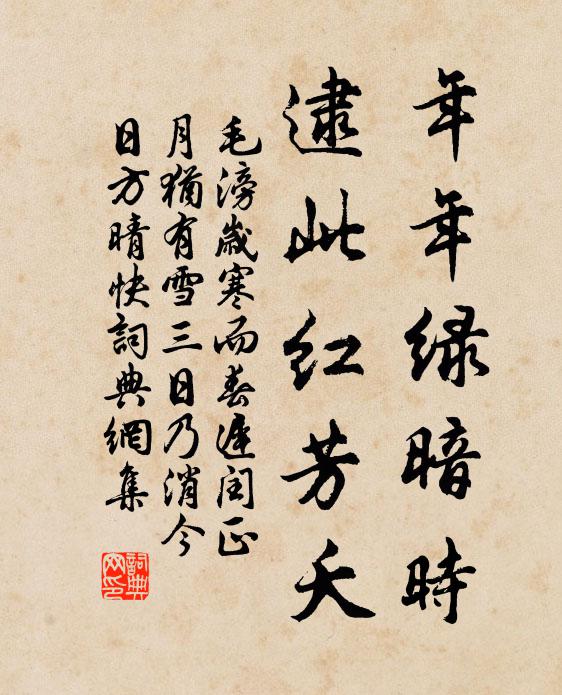 年年緑暗時
逮此紅芳夭
毛滂歲寒而春遲閏正
月猶有雪三日乃消今
日方晴快詞典網集
詞典
网印